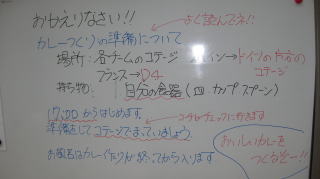 おかえりなさい!!
よく読んでネ!!
カレーづくりの準備について
場所:各チームのコテージ
イン→ドイツのたかの
コテージ
フランス→D4
持ち物:自分の食器(皿 カップ スプーン)
17:00からはじめます。
準備をしてコテージでまっていましょう
お風呂はカレー作りが終わってから入ります
おいしいカレーを
つくるぞー!!